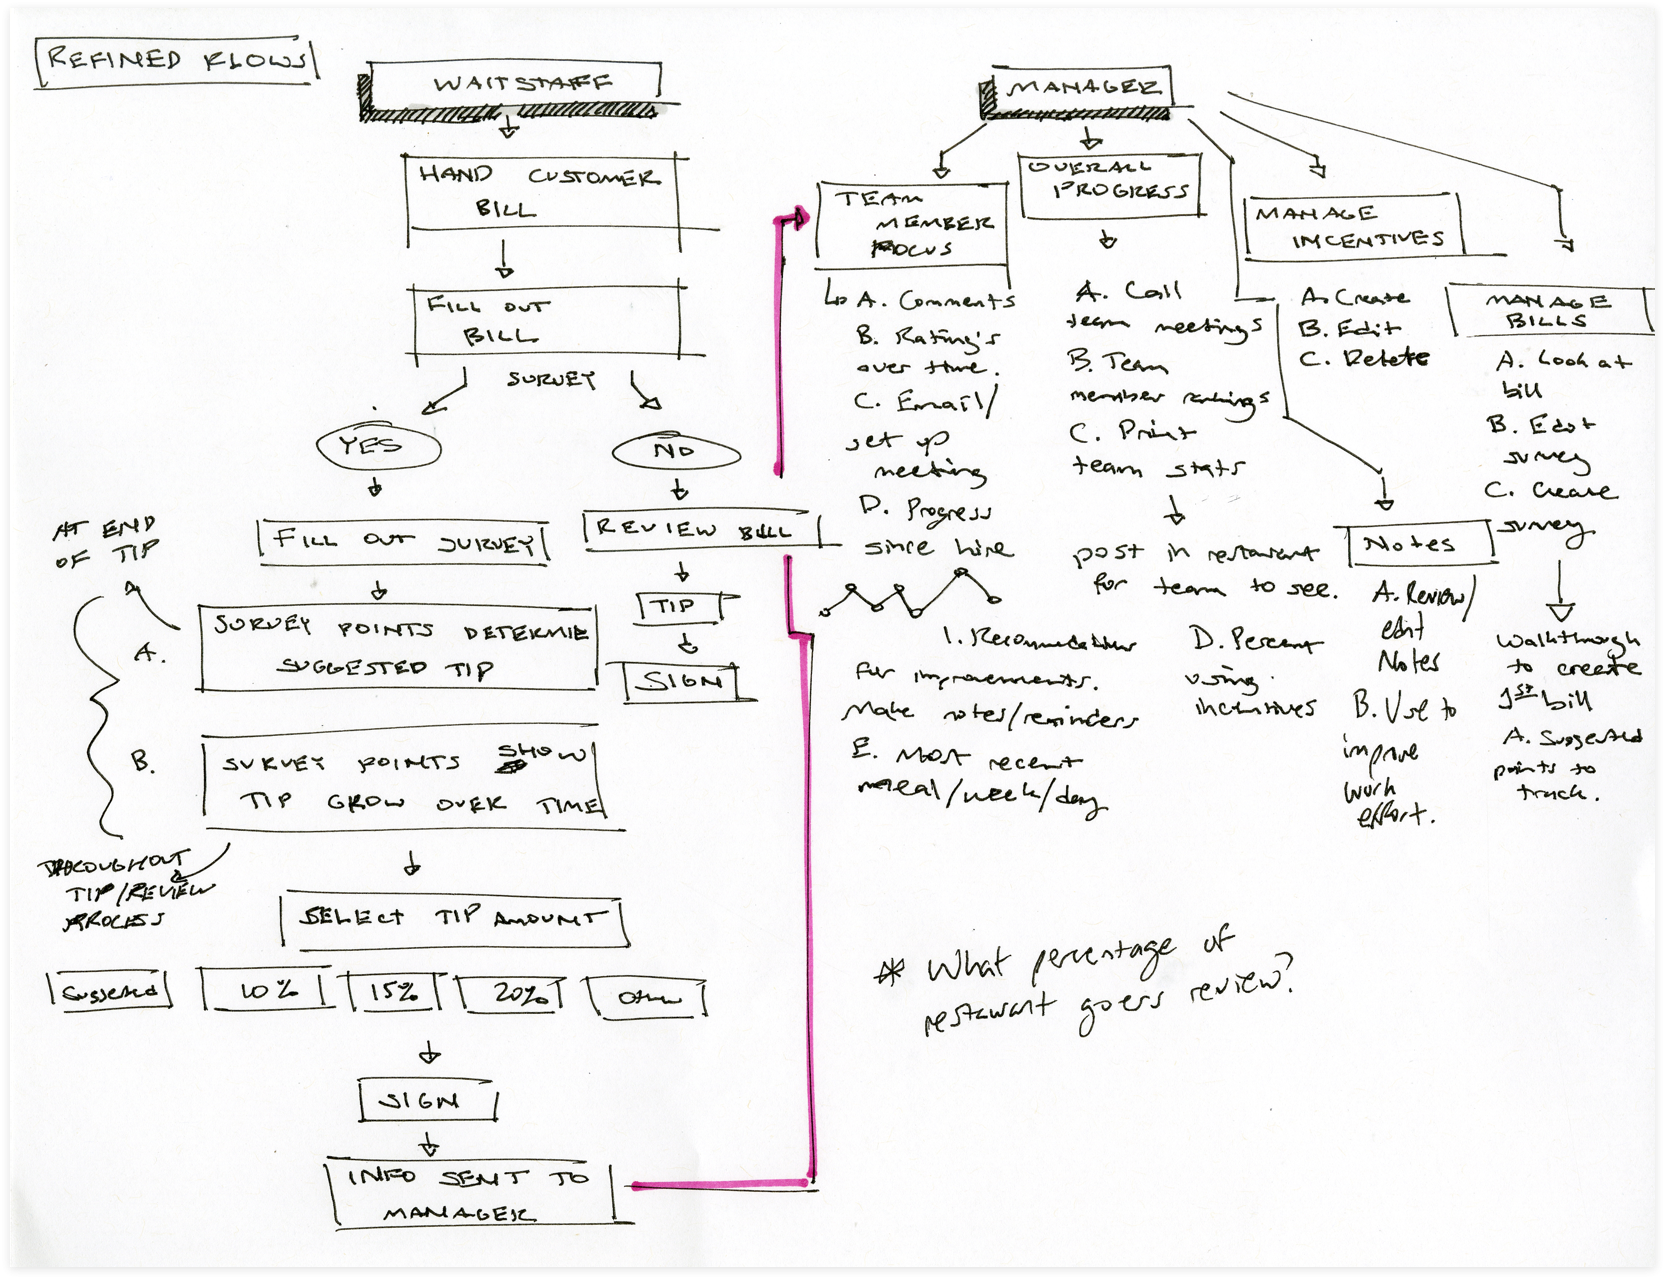 REFINED FLOWS
WAITSTAFF
HAND CUSTOMER
BILL
FILL OUT
BILL
SURVEY
YES
NO
FILL OUT SURVEY
REVIEW BILL
TIP
SIGN
AT END
OF TIP
A.
SURVEY POINTS DETERMIE
SUGGESTED TIP
B.
SURVEY POINTS SHOW
TIP GROW OVER TIME
THROUGHOUT
TIP/REVIEW
PROCESS
SELECT TIP AMOUNT
Suggested
10%
15%
20%
Other
SIGN
INFO SENT TO
MANAGER
MANAGER
TEAM
MEMBER
FOCUS
A. Comments
B. Rating's
over time.
C. Email/
set up
meeting
D. Progress
since hire
1. Recommendations
for improvements.
Make notes/reminders
E. Most recent
meal/week/day
OVERALL
PROGRESS
A. Call
team meetings
B. Team
member rankings
C. Print
team stats
post in restaurant
for team to see.
D. Percent
using
incentives
MANAGE
INCENTIVES
A. Create
B. Edit
C. Delete
Notes
A. Review/
edit
Notes
B. Use to
improve
work
effort.
MANAGE
BILLS
A. Look at
bill
B. Edit
survey
C. Create
survey
Walkthrough
to create
1st bill
A. Suggested
points to
track.
* What percentage of
restaurant goers review?